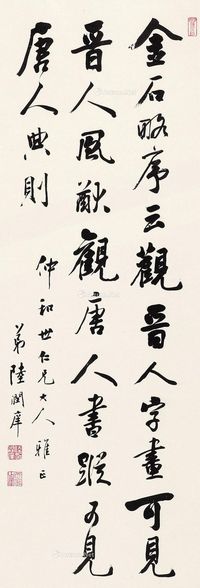 金石略序云觀晉人字畫可見
晉人風猷觀唐人書蹤可見
唐人典則
仲和世仁兄大人雅正
弟陸潤庠